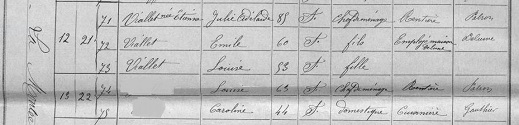 71 Viallet née Etienne Julie Adélaïde 85 F. chef ménage Rentière Patron
12 21 72 Viallet Emile 60 F. fils Employé maison Delaune
73 Viallet Louise 53 F. fille
13 22 74 Louise 63 F. chef ménage Rentière Patron
75 Caroline 44 F. domestique Cuisinière Gauthier